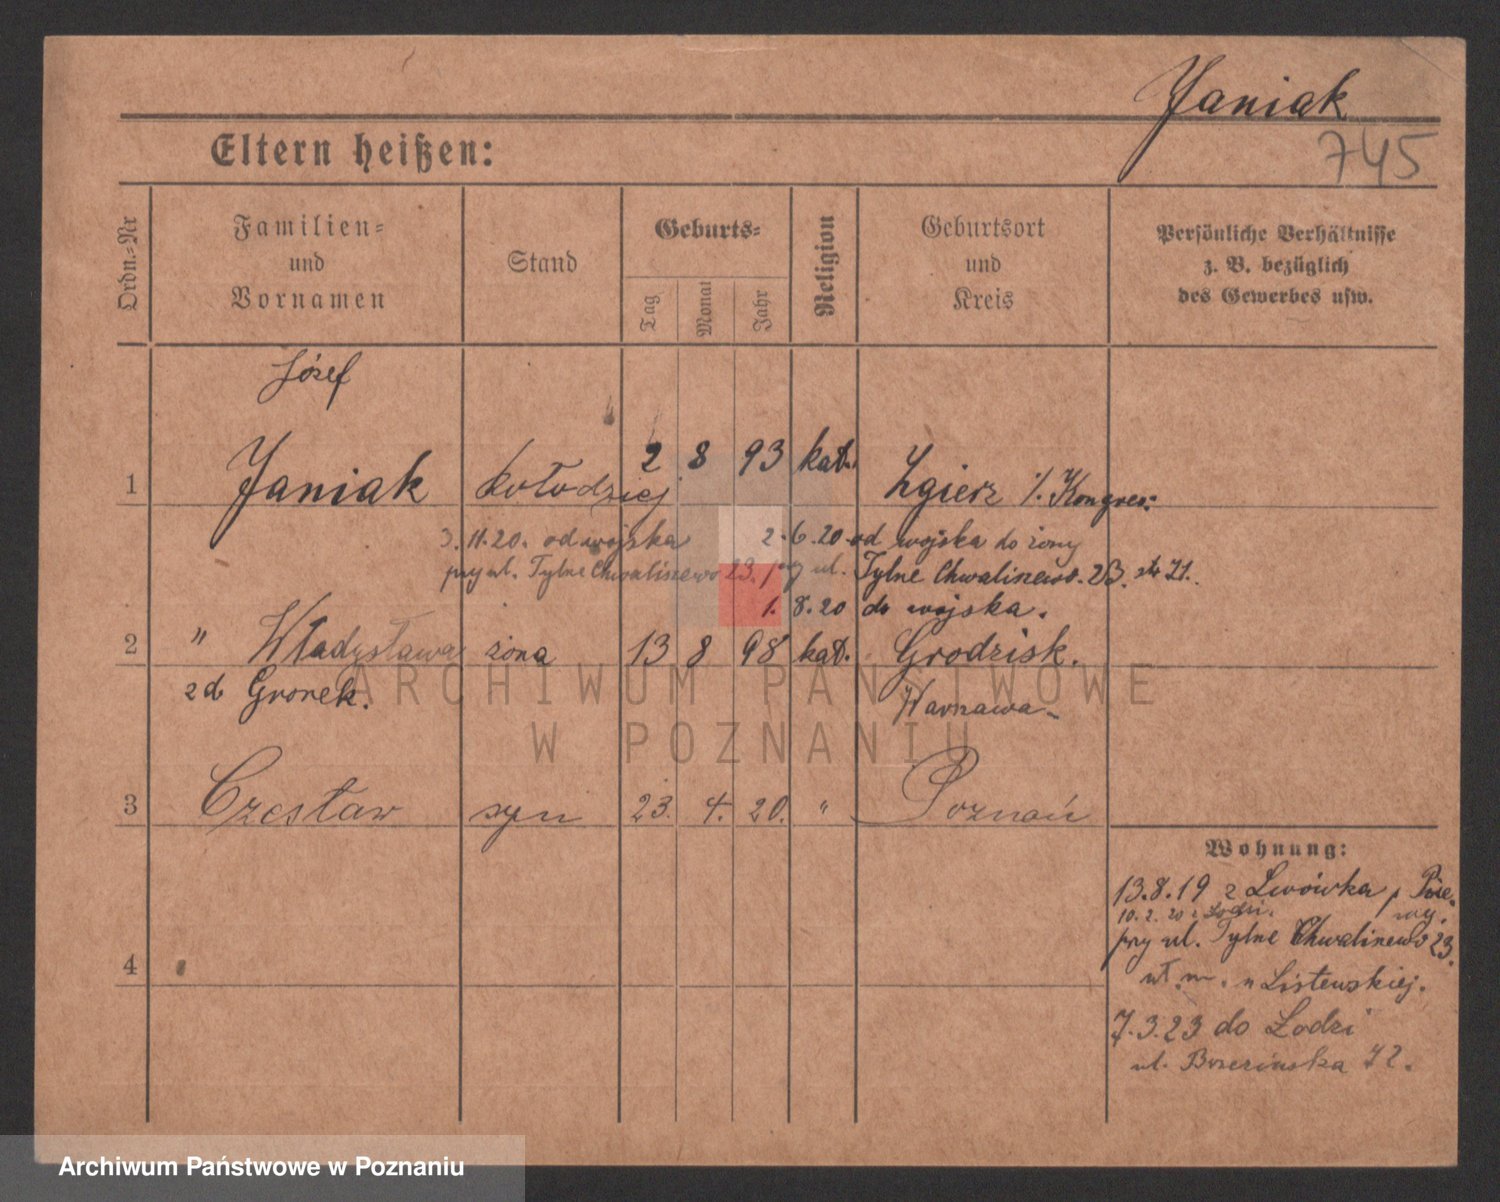 Janiak
745
Eltern heißen:
Ordn.-Nr
Familien-
und
Vornamen
Stand
Geburts-
Tag
Monat
Jahr
Religion
Geburtsort
und
Kreis
Persönliche Verhältnisse
z. B. bezüglich
des Gewerbes usw.
Józef
1 Janiak kołodziej 2 8 93 kat. Zgierz Kongres:
3.11.20. od wojska 2.6.20 od wojska do żony
przy ul. Tylne Chwaliszewo 23. przy ul. Tylne Chwaliszewo. 23.
1. 8.20 do wojska.
2 " Władysława żona 13 8 98 kat. Grodzisk.
zd Gronek. Warszawa
3 Czesław syn 23. 4. 20. " Poznań
Wohnung:
13.8.19 z Lwówka
10.2.20 z Łodzi.
przy ul. Tylne Chwaliszewo 23.
Listewskiej.
4
7.3.23 do Łodzi
ul. Brzezińska 72.
ARCHIWUM PAŃSTWOWE
W POZNANIU
Archiwum Państwowe w Poznaniu